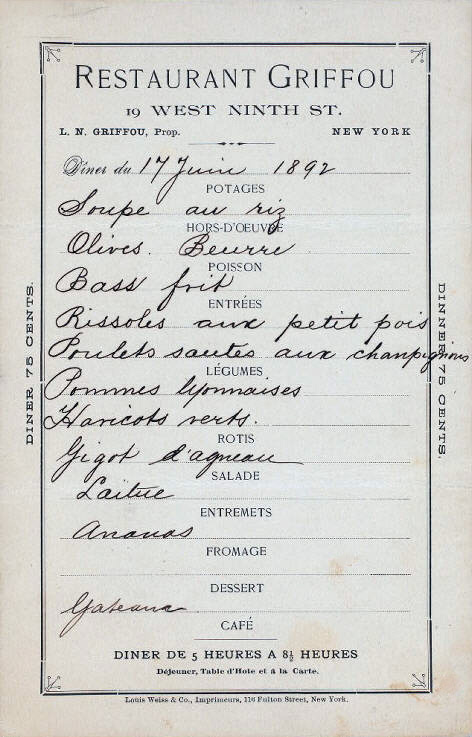 RESTAURANT GRIFFOU
19 WEST NINTH ST.
L. N. GRIFFOU, Prop. NEW YORK
Dîner du 17 Juin 1892
POTAGES
Soupe au riz
HORS-D'OEUVRE
Olives. Beurre
POISSON
Bass frit
ENTRÉES
Rissoles aux petit pois
Poulets sautes aux chanpignons
LÉGUMES
Pommes lyonnaises
Haricots verts.
ROTIS
Gigot d'agneau
SALADE
Laitue
ENTREMETS
Ananas
FROMAGE
DESSERT
Gateaux
CAFÉ
DINER DE 5 HEURES A 8½ HEURES
Déjeuner, Table d'Hote et à la Carte.
Louis Weiss & Co., Imprimeurs, 116 Fulton Street, New York.
DINER 75 CENTS.
DINNER 75 CENTS.